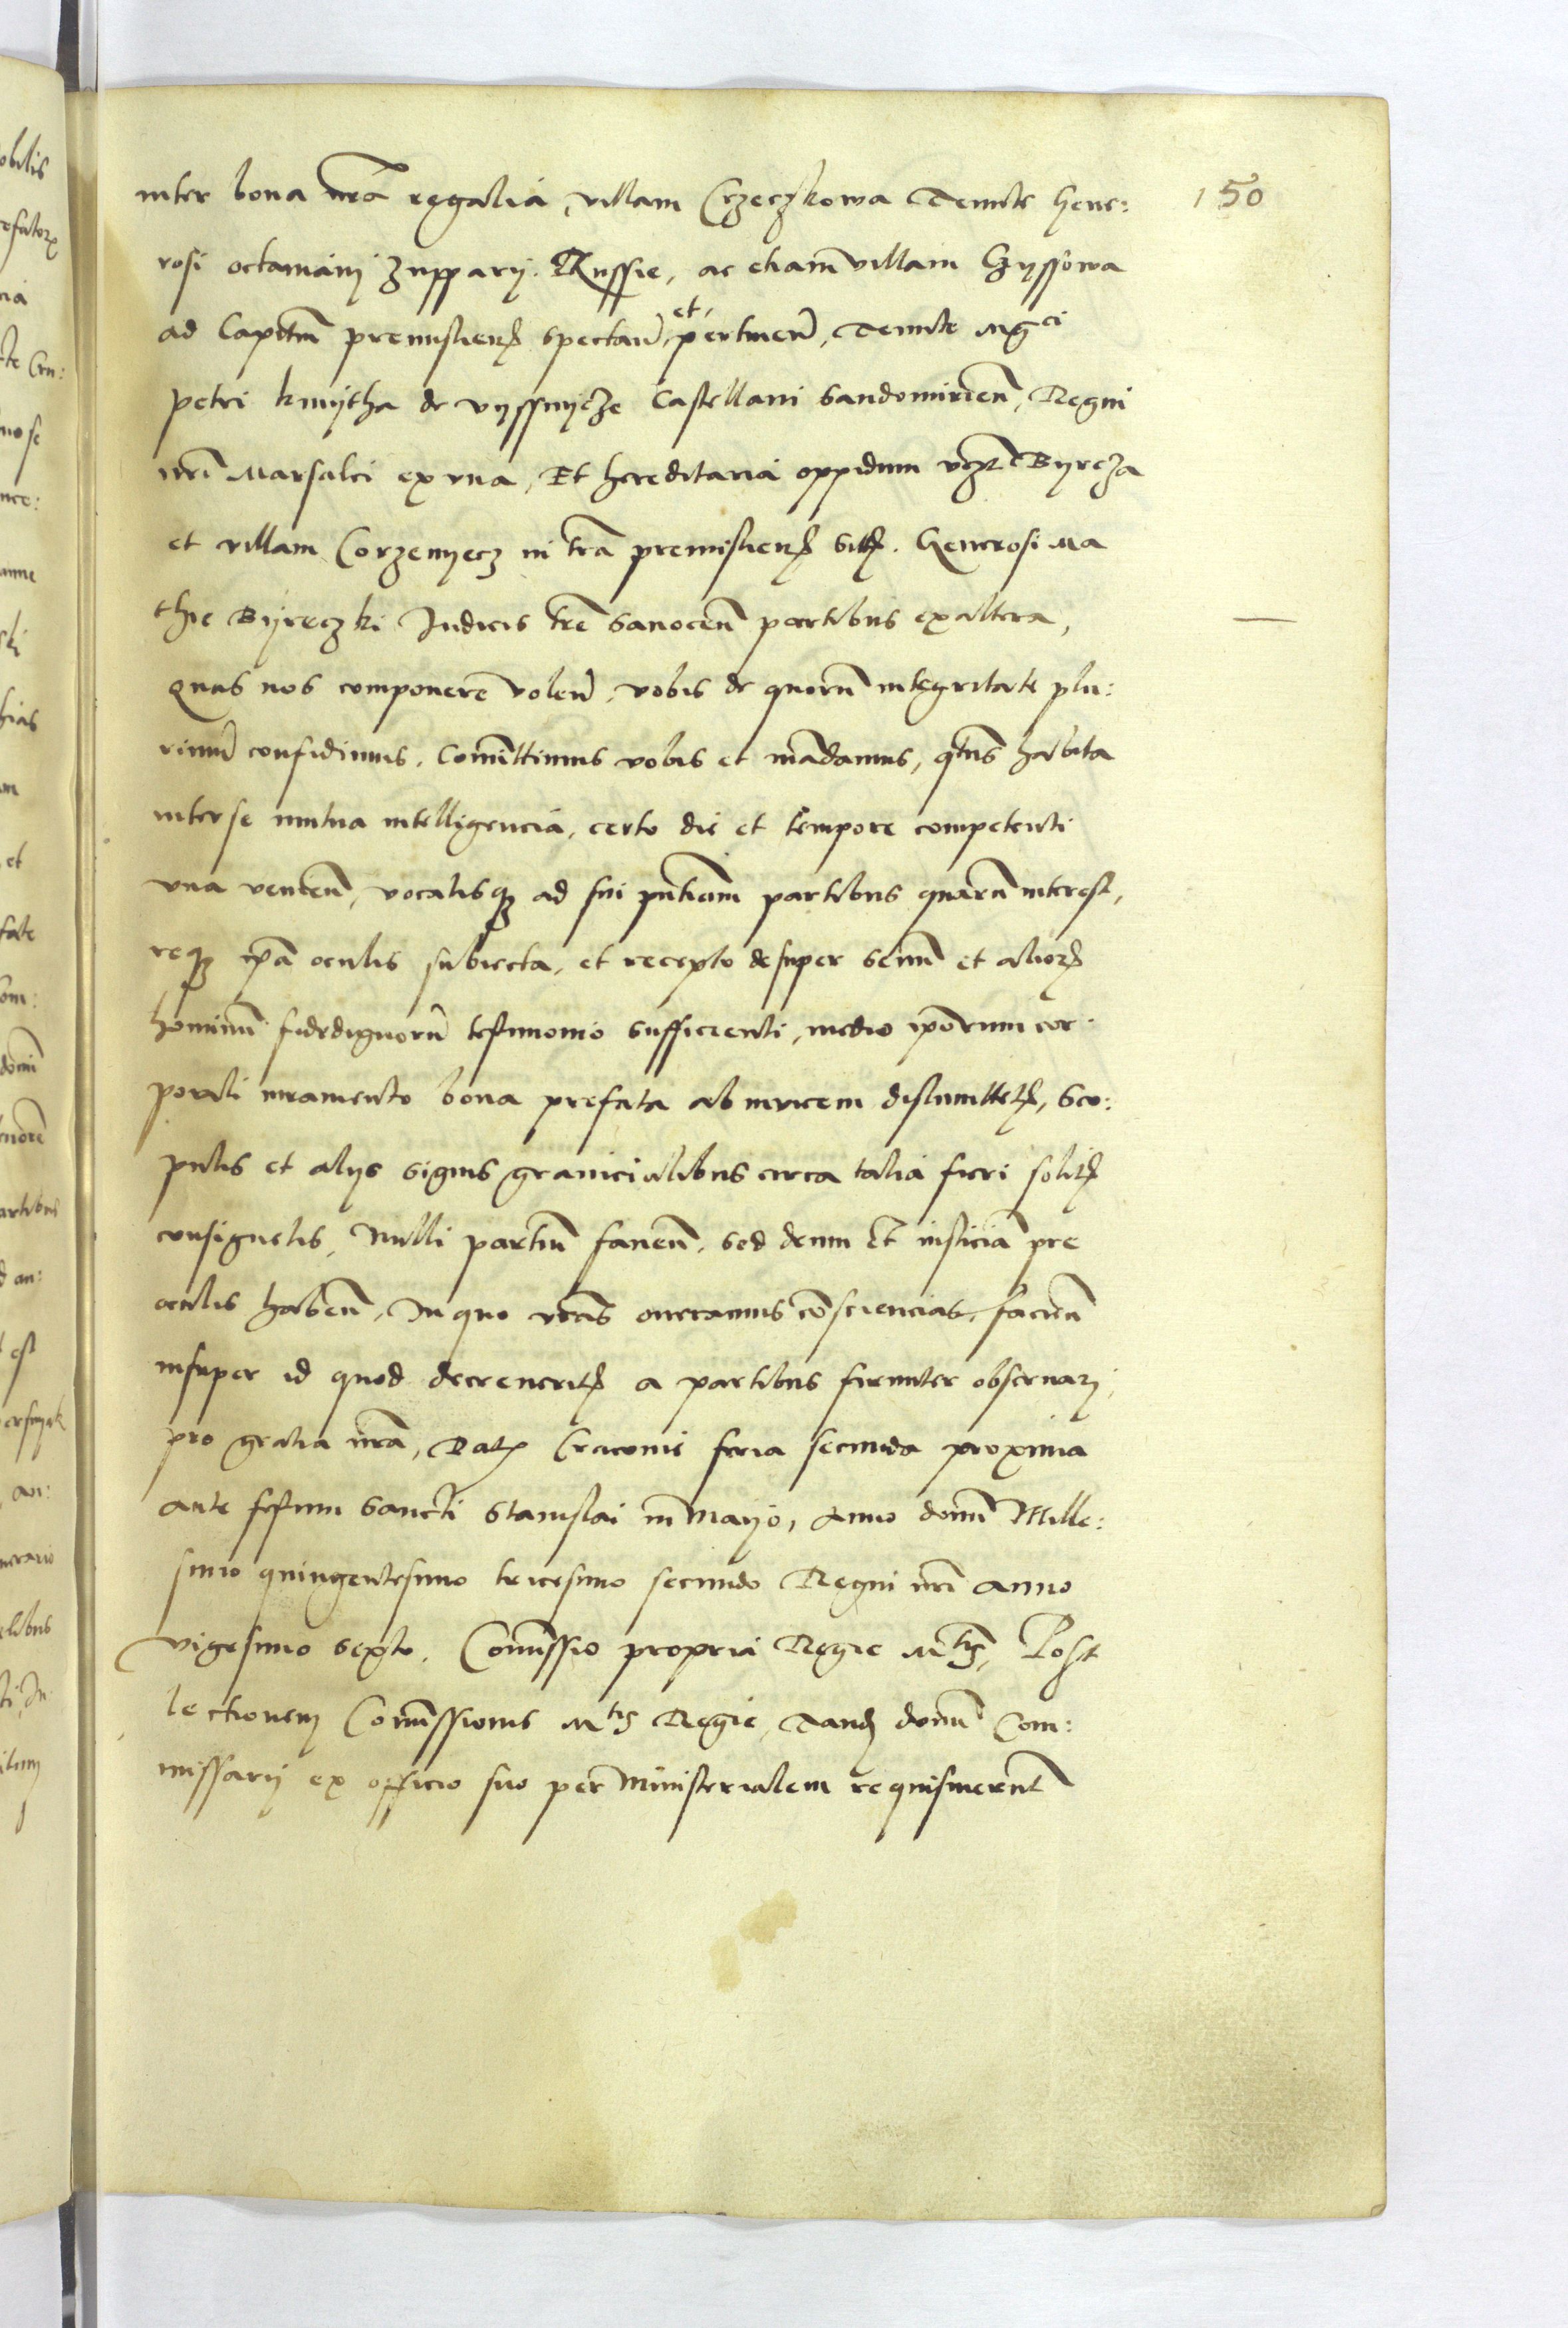 150
inter bona nra regalia, villam Crzeczkowa Tenute Gene:
rosi octaviani Zupparij Russie, ac etiam villam Lyssowa
ad Capitm premislien spectan et pertinen, Tenute Mgci
petri kmytha de vyssnycze Castellani Sandomirien, Regni
nri Marsalci ex vna, Et hereditaria oppidum vczt Byrcza
et villam Corzenyecz in tra premislien sitt. Generosi Ma
thie Byreczki Judicis tre Sanocen partibus ex altera,
Quas nos componere volen, vobis de quorum integritate plu:
rimum confidimus. Comittimus vobis et madamus, qtns habita
inter se mutua intelligencia, certo die et tempore competenti
vna venien, vocatisq ad sui pntiam partibus quarum interest,
req ipa oculis subiecta, et recepto desuper senum et alior
hominum fidedignorum testimonio sufficienti, medio ipsorum cor
porali iuramento bona prefata ab invicem distimitet, Sco:
pulis et alijs signis granicialibus circa talia fieri solit
consignetis, Nulli partium faven, sed deum et iusticiam pre
oculis haben, In quo vras oneramus consciencias, facien
insuper id quod decreverit a partibus firmiter observari,
pro gratia nra, Dat Cracovie feria secunda proxima
ante festum Sancti Stanislai in Mayo, Anno domi Mille:
simo quingentesimo tricesimo secundo Regni nri anno
vigesimo sexto. Comissio propria Regie Mtis, Post
lectionem Comissionis Mtis Regie, Tand domi Com:
missarij ex officio suo per Ministerialem requisiverunt